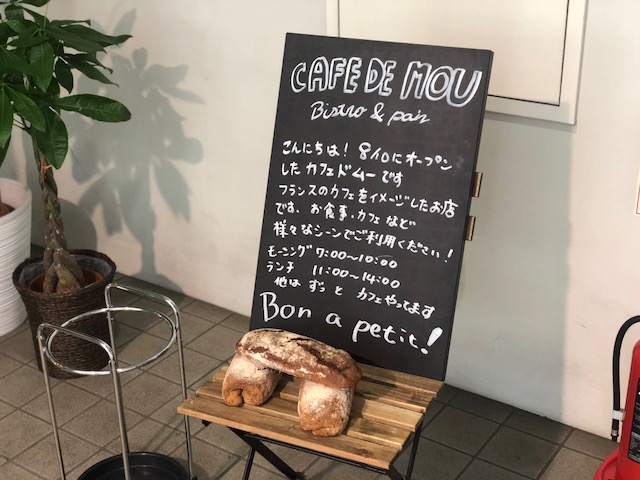 CAFE DE MOU
Bistro & pain
こんにちは! 8/10にオープン
したカフェドムーです
フランスのカフェをイメージしたお店
です、お食事・カフェなど
様々なシーンでご利用ください!
モーニング 7:00~10:00
ランチ 11:00~14:00
他はずっとカフェやってます
Bon a petit!